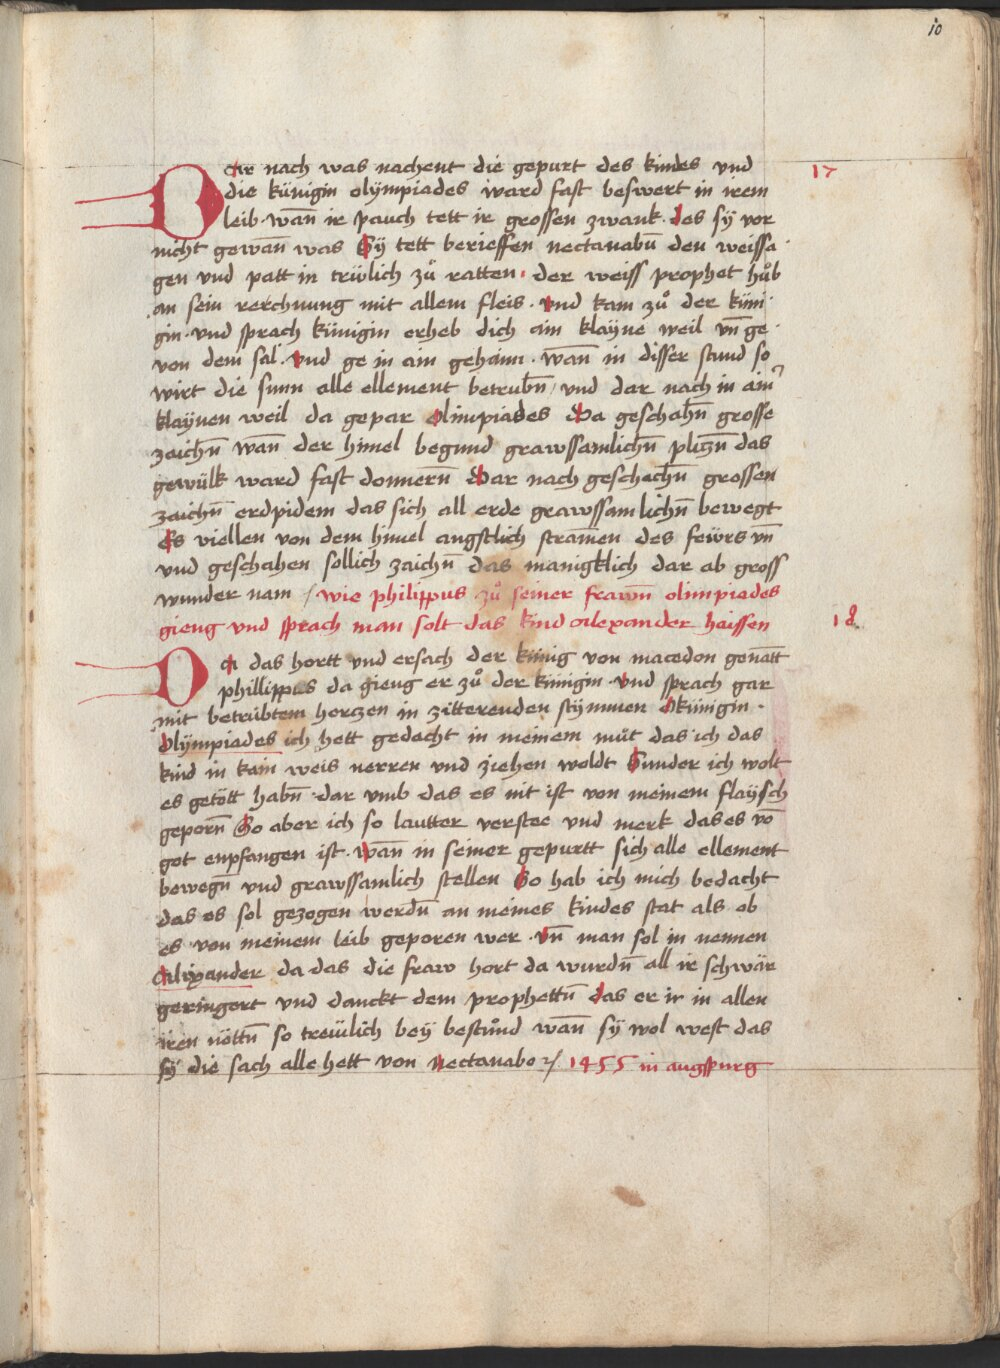 10
Dar nach was nachent die gepurt des kindes und
17
die künigin olÿmpiades ward fast beswert in irem
leib · wan̄ ir pauch tett ir grossen zwank · des sÿ vor
nicht gewan̄ was Sÿ tett berieffen nectanabū den weissa·
gen und patt in trüͤlich zuͦ ratten · der weiss prophet huͦb
an sein rechnung mit allem fleis · und kam zuͦ der küni·
gin · und sprach künigin erheb dich ain klaÿne weil vn̄ ge ·
von dem sal · und ge in ain gehaim · wan̄ in disser stund so
wirt die sunn alle ellement betrubn̄ / und dar nach in ain̄
klaÿnen weil da gepar Olimpiades Da geschahn̄ grosse
zaichn̄ wan̄ der himel begund grawssamlichn̄ pliczn̄ das
gewülk ward fast donnern̄ Dar nach geschachn̄ grossen
zaichn̄ erdpidem das sich all erde grawssamlichn̄ bewegt
Es viellen von dem himel angstlich stramen des feürs vn̄
und geschahen sollich zaichn̄ das manigklich dar ab gross
wunder nam / wie philippus zuͦ seiner frawn̄ olimpiades
gieng und sprach man solt das kind Alexander haissen
18
Da das hortt und ersach der künig von macedon genātt
phillippus da gieng er zuͦ der künigin · und sprach gar
mit betrübtem herczen in zitterenden stÿmmen O künigin ·
Olÿmpiades ich hett gedacht in meinem müt das ich das
kind in kain weis nerren und ziehen woldt Sunder ich wolt
es getött habn̄ · dar umb das es nit ist von meinem flaÿsch
geporn̄ So aber ich so lautter verstee und merk das es vō
got enpfangen ist · wan̄ in seiner gepurtt sich alle ellement
bewegn̄ und grawssamlich stellen So hab ich mich bedacht
das es sol gezogen werdn̄ an meines kindes stat als ob
es von meinem leib geporen wer · vn̄ man sol in nennen
Alixander da das die fraw hort da wurdn̄ all ir schwär
geringert und danckt dem prophettn̄ das er ir in allen
iren nöttn̄ so treülich beÿ bestuͦnd wan̄ sÿ wol west das
sÿ die sach alle hett von Nectanabo ꝛ 1455 in augspurg